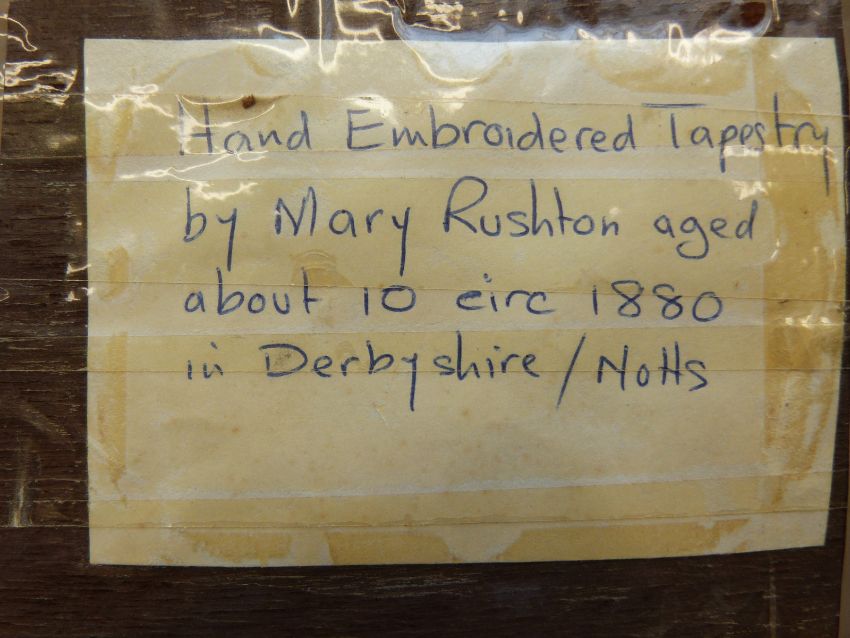 Hand Embroidered Tapestry
by Mary Rushton aged
about 10 circ 1880
in Derbyshire / Notts